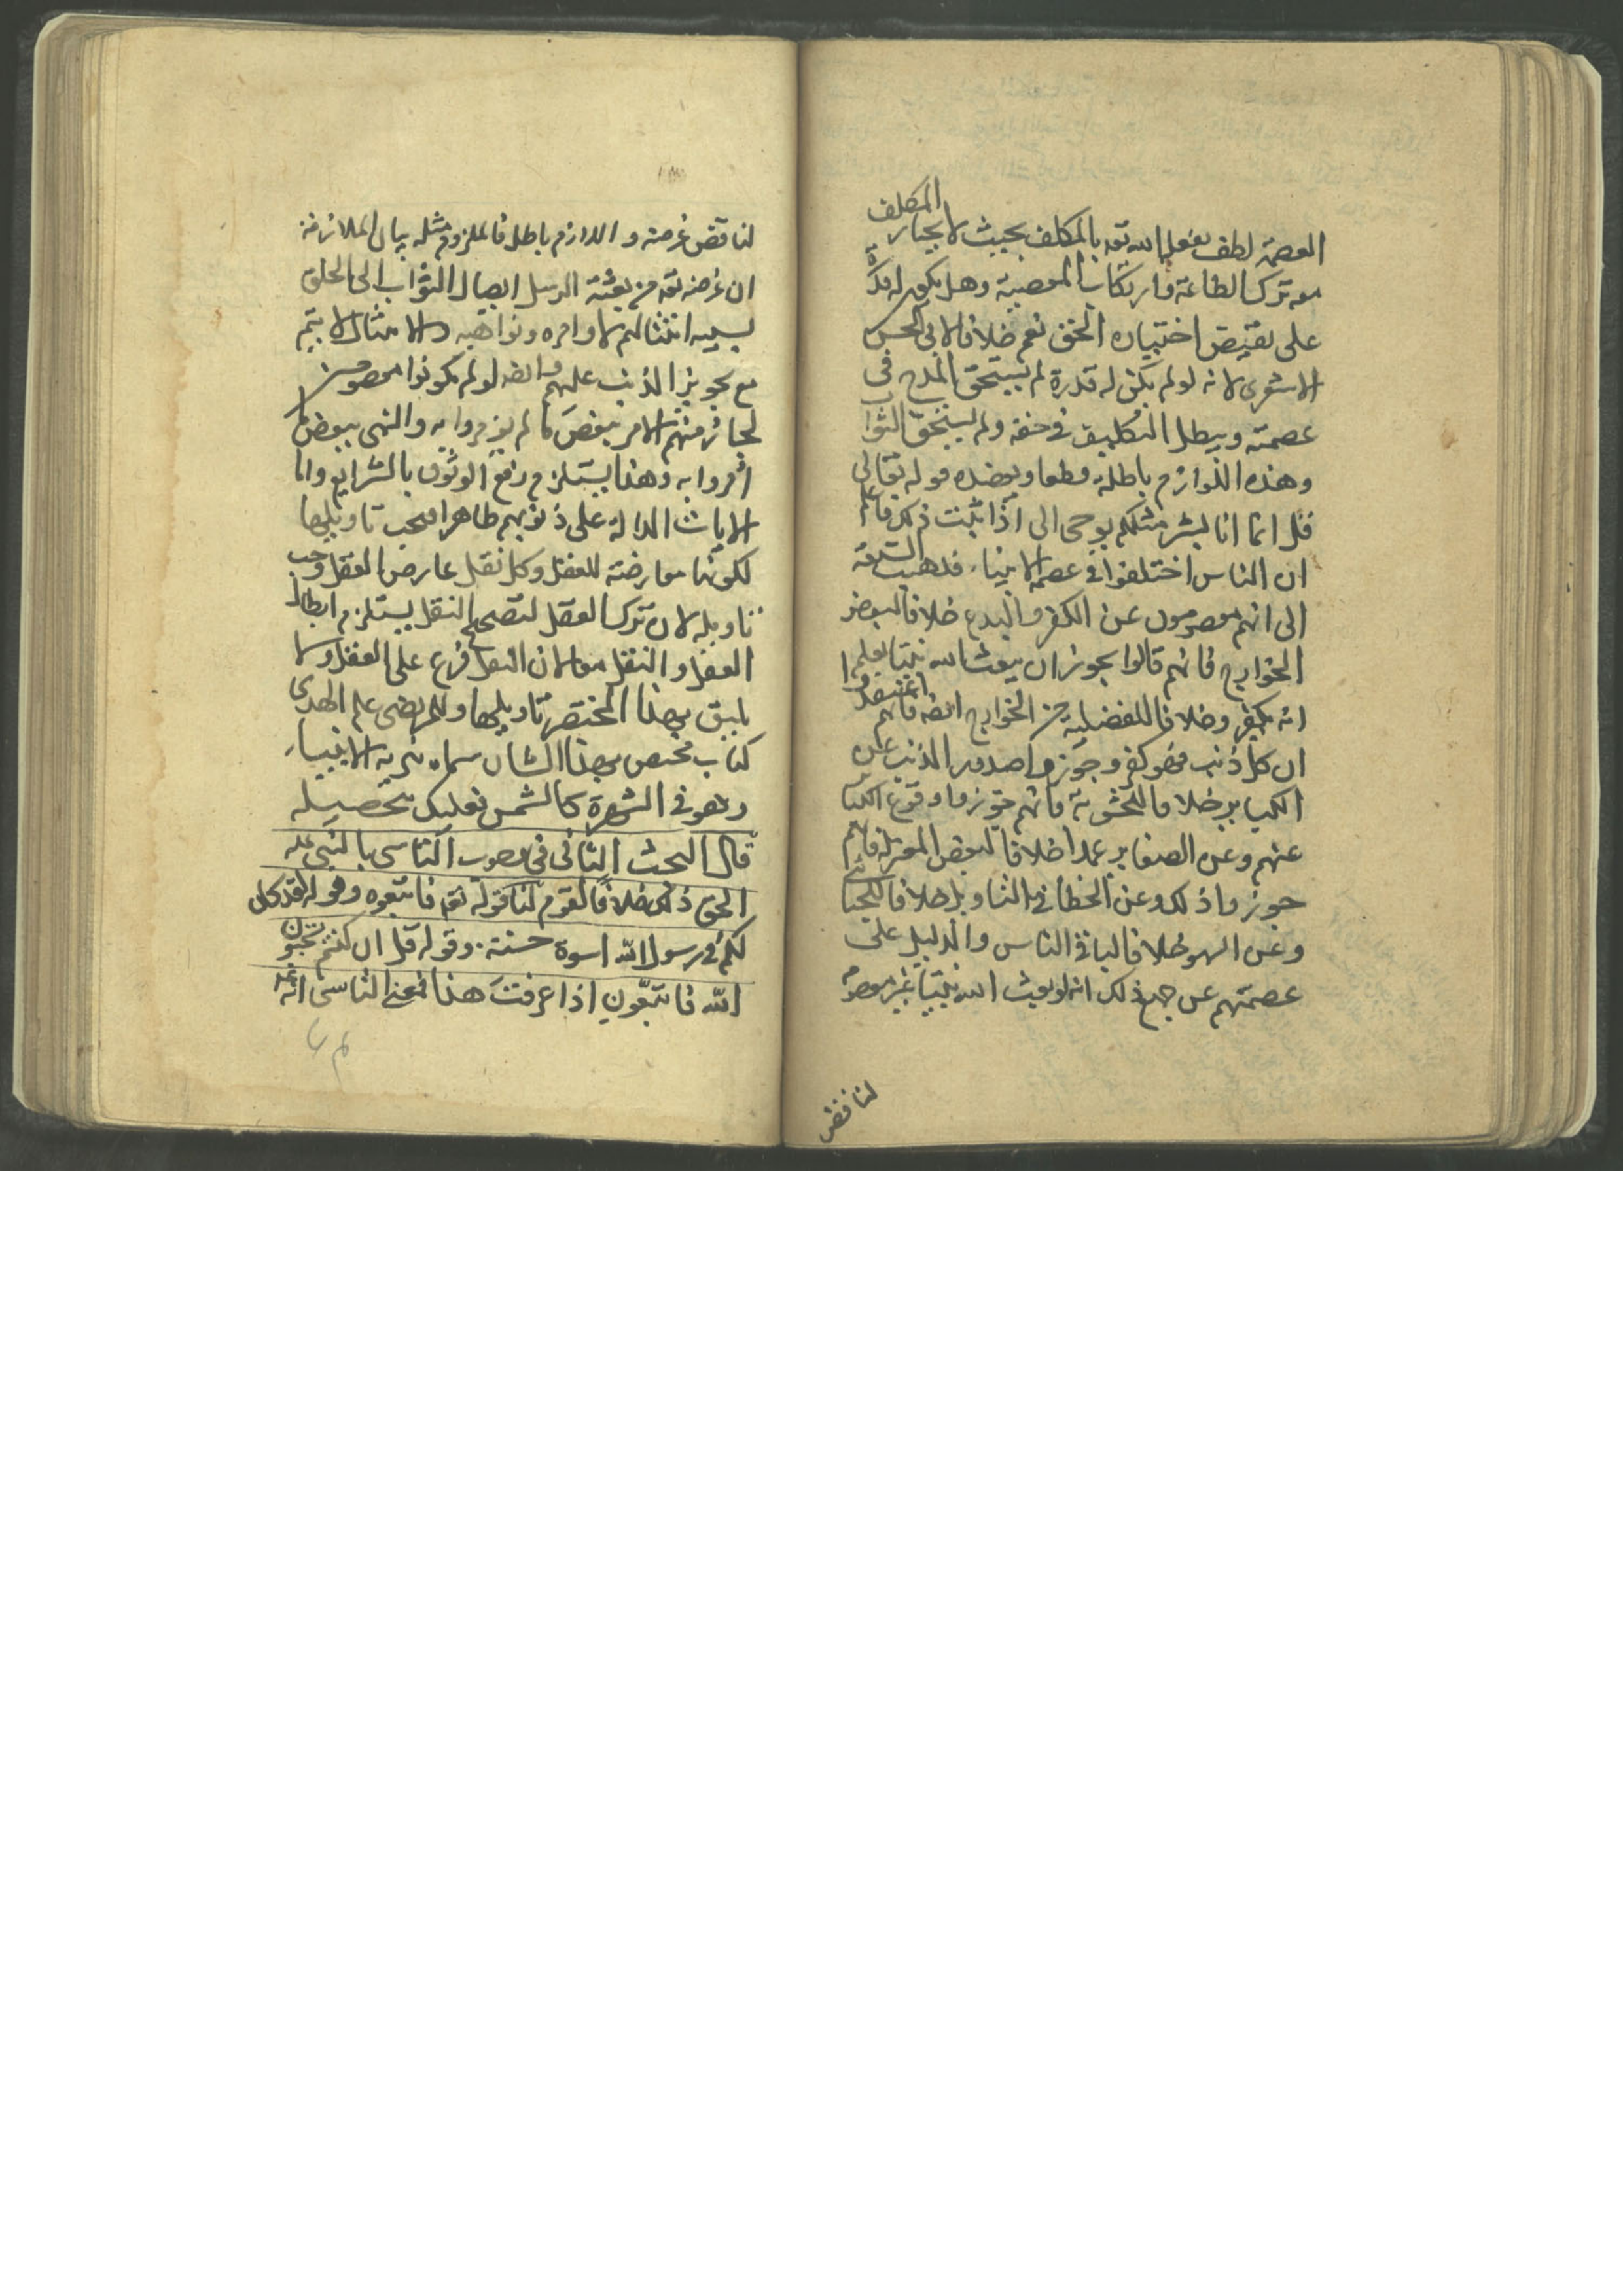 العصمة لطف يفعله الله تعه بالمكلف بحيث لا يختار المكلف
معه ترك الطاعة وارتكاب المعصية وهل يكون له قدرة
على نقيض اختياره الحق نعم خلافا لابى الحسن
الاشعرى لانه لو لم يكن له قدرة لم يستحق المدح فى
عصمته ويبطل التكليف فى حقه ولم يستحق الثواب
وهذه اللوازم باطلة قطعا ويعضده قوله تعالى
قل انما انا بشر مثلكم يوحى الى اذا ثبت ذلك فاعلم
ان الناس اختلفوا فى عصمة الانبياء فذهبت
الى انهم معصومون عن الكفر والبدع خلافا لبعض
الخوارج فانهم قالوا يجوز ان يبعث الله نبيا يعلم
انه يكفر وخلافا للفضيلية من الخوارج ايضه فانهم اعتقدوا
ان كل ذنب فهو كفر وجوزوا صدور الذنب وعن
الكباير خلافا للحشوية فانهم جوزوا وقوع الكبا
عنهم وعن الصغاير عمدا خلافا لبعض المعتزلة فانهم
جوزوا ذلك وعن الخطأ فى التاويل خلافا للجبا
وعن السهو خلافا لباقى الناس والدليل على
عصمتهم عن جميع ذلك انه لو بعث الله نبيا غير معصوم
لناقض
لناقض غرضه واللازم باطل فالملزوم مثله بيان الملازمة
ان غرضه تعه من بعثة الرسل ايصال الثواب الى الخلق
بسبب امتثالهم لاوامره ونواهيه والامتثال لا يتم
مع تجويز الذنب عليهم وايضه لو لم يكونوا معصومين
لجاز منهم الامر ببعض ما لم يؤمروا به والنهى ببعض ما
امروا به وهذا يستلزم رفع الوثوق بالشرايع واما
الايات الدالة على ذنوبهم ظاهرا فيجب تاويلها
لكونها معارضة للعقل وكل نقل عارض العقل وجب
تاويله لان ترك العقل لتصحيح النقل يستلزم ابطال
العقل والنقل معا لان النقل فرع على العقل ولا
يليق بهذا المختصر تاويلها وللمرتضى علم الهدى
كتاب مختص بهذا الشان سماه تنزيه الانبياء
وهو فى الشهرة كالشمس فعليك بتحصيله
قال البحث الثانى فى وجوب التاسى بالنبى عله
الحق ذلك خلافا لقوم لنا قوله تعه فاتبعوه وقوله لقد كان
لكم فى رسول الله اسوة حسنة وقوله قل ان كنتم تحبون
الله فاتبعون اذا عرفت هذا فمعنى التاسى